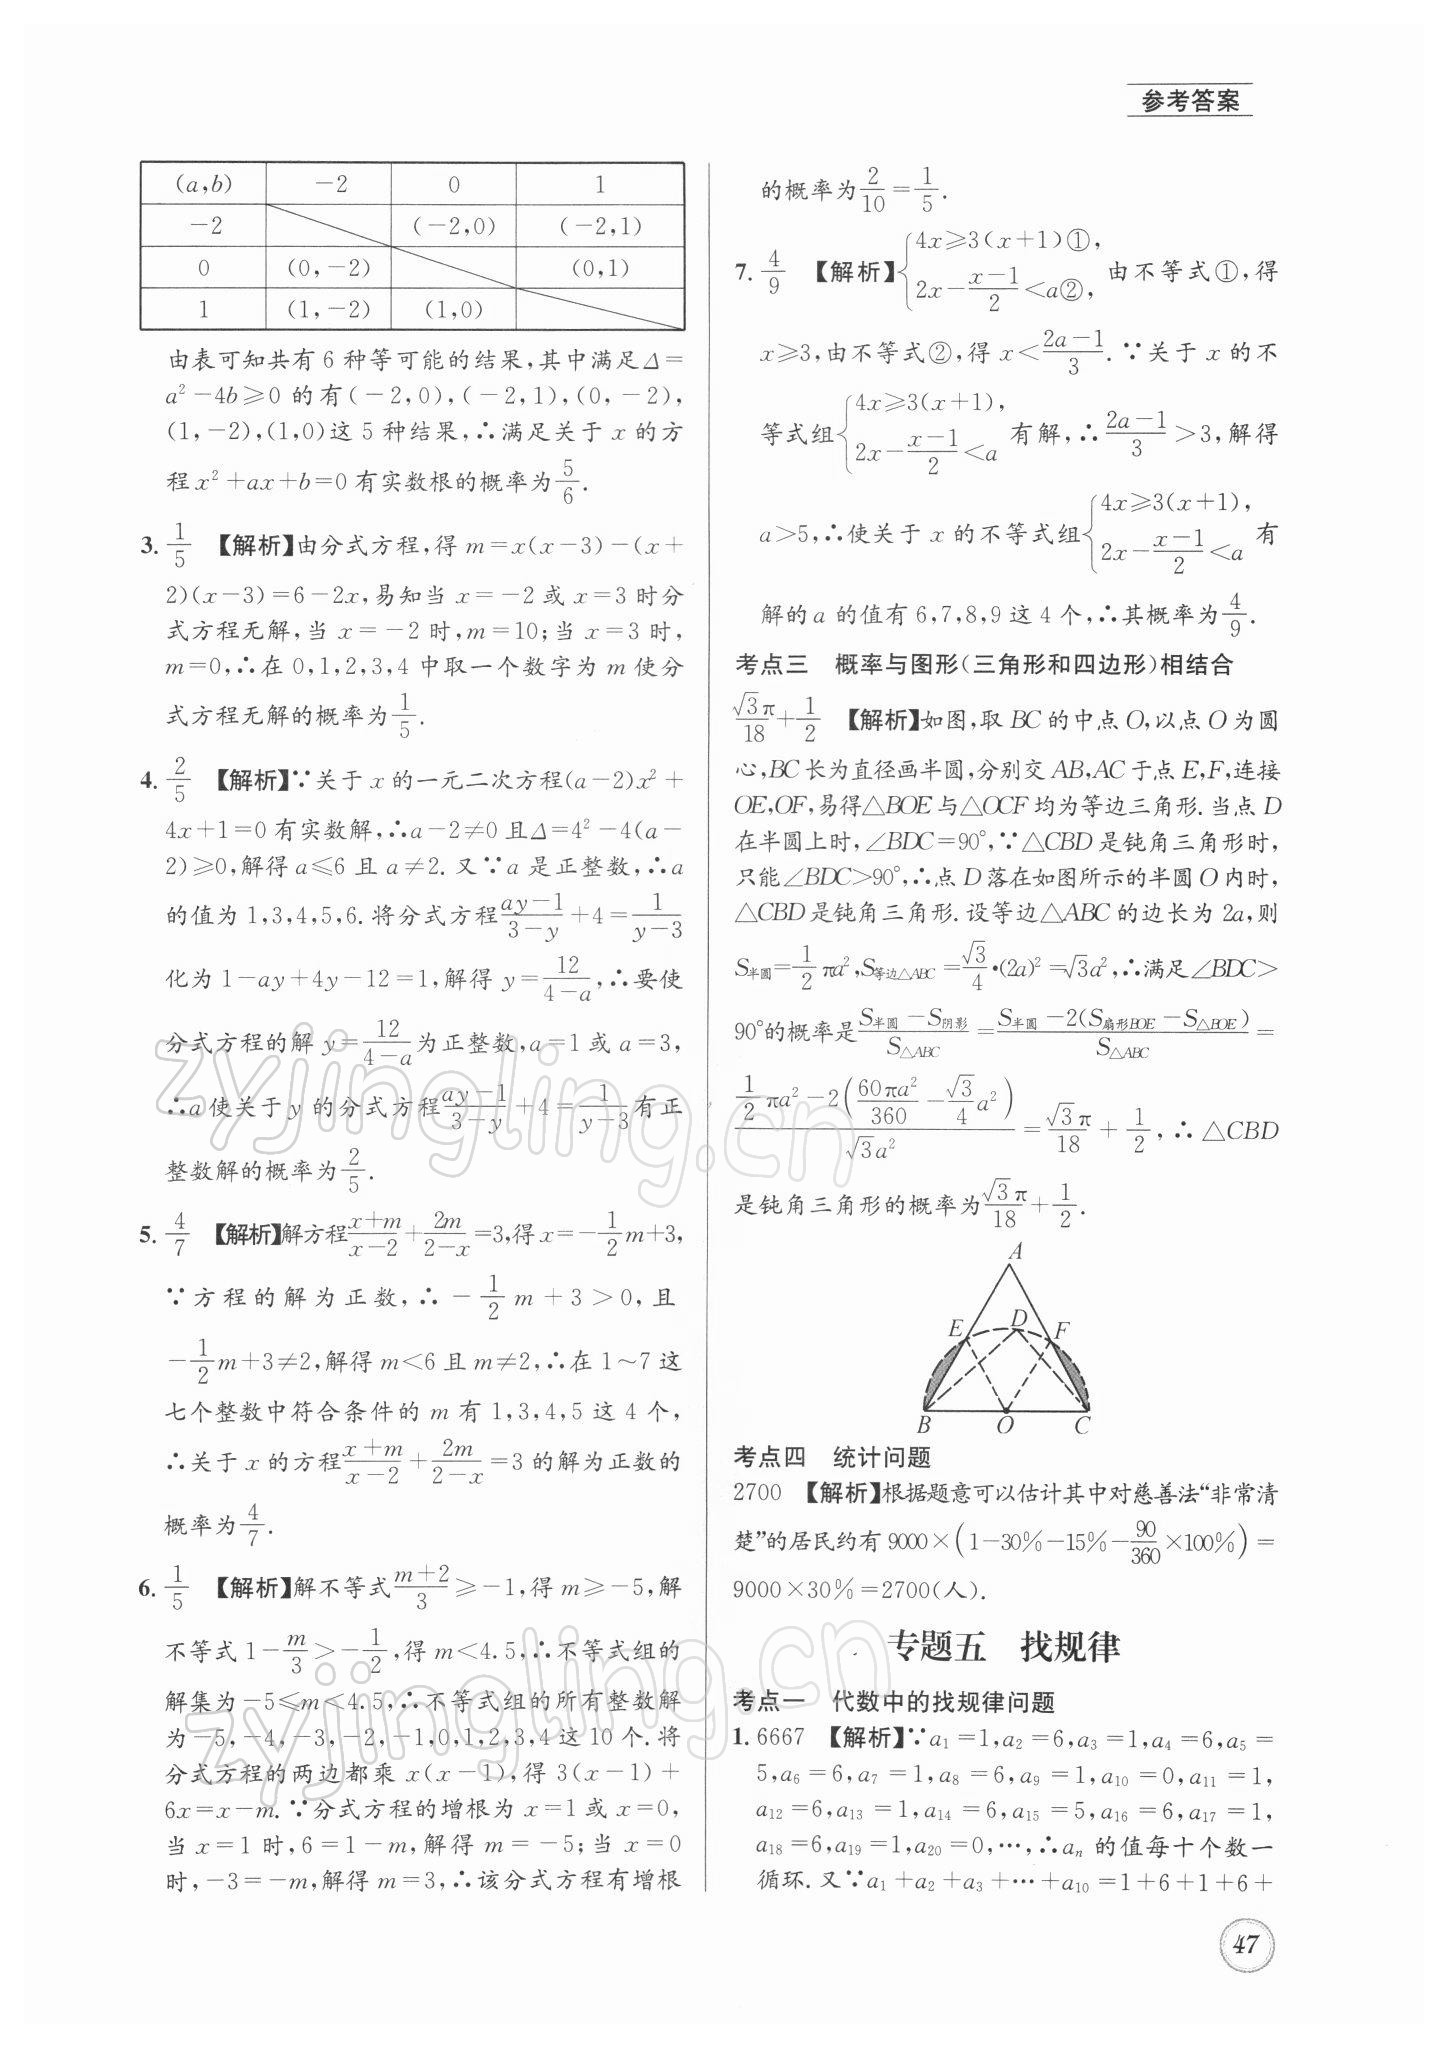 参考答案
(a,b) -2 0 1
-2 (-2,0) (-2,1)
0 (0,-2) (0,1)
1 (1,-2) (1,0)
由表可知共有 6 种等可能的结果,其中满足Δ=
a²-4b≥0 的有(-2,0),(-2,1),(0,-2),
(1,-2),(1,0)这 5 种结果,∴满足关于 x 的方
程 x²+ax+b=0 有实数根的概率为5/6.
3. 1/5 【解析】由分式方程,得 m=x(x-3)-(x+
2)(x-3)=6-2x,易知当 x=-2 或 x=3 时分
式方程无解,当 x=-2 时,m=10;当 x=3 时,
m=0,∴在 0,1,2,3,4 中取一个数字为 m 使分
式方程无解的概率为1/5.
4. 2/5 【解析】∵关于 x 的一元二次方程(a-2)x²+
4x+1=0 有实数解,∴a-2≠0 且Δ=4²-4(a-
2)≥0,解得 a≤6 且 a≠2. 又∵a 是正整数,∴a
的值为 1,3,4,5,6. 将分式方程(ay-1)/(3-y)+4=1/(y-3)
化为 1-ay+4y-12=1,解得 y=12/(4-a),∴要使
分式方程的解 y=12/(4-a)为正整数,a=1 或 a=3,
∴a 使关于 y 的分式方程(ay-1)/(3-y)+4=1/(y-3)有正
整数解的概率为2/5.
5. 4/7 【解析】解方程(x+m)/(x-2)+2m/(2-x)=3,得 x=-1/2m+3,
∵方程的解为正数,∴-1/2m+3>0,且
-1/2m+3≠2,解得 m<6 且 m≠2,∴在 1~7 这
七个整数中符合条件的 m 有 1,3,4,5 这 4 个,
∴关于 x 的方程(x+m)/(x-2)+2m/(2-x)=3 的解为正数的
概率为4/7.
6. 1/5 【解析】解不等式(m+2)/3≥-1,得 m≥-5,解
不等式 1-m/3>-1/2,得 m<4.5,∴不等式组的
解集为-5≤m<4.5,∴不等式组的所有整数解
为-5,-4,-3,-2,-1,0,1,2,3,4 这 10 个. 将
分式方程的两边都乘 x(x-1),得 3(x-1)+
6x=x-m.∵分式方程的增根为 x=1 或 x=0,
当 x=1 时,6=1-m,解得 m=-5;当 x=0
时,-3=-m,解得 m=3,∴该分式方程有增根
的概率为2/10=1/5.
7. 4/9 【解析】{4x≥3(x+1)①, 2x-(x-1)/2<a②, 由不等式①,得
x≥3,由不等式②,得 x<(2a-1)/3.∵关于 x 的不
等式组{4x≥3(x+1), 2x-(x-1)/2<a 有解,∴(2a-1)/3>3,解得
a>5,∴使关于 x 的不等式组{4x≥3(x+1), 2x-(x-1)/2<a 有
解的 a 的值有 6,7,8,9 这 4 个,∴其概率为4/9.
考点三 概率与图形(三角形和四边形)相结合
√3π/18+1/2 【解析】如图,取 BC 的中点 O,以点 O 为圆
心,BC 长为直径画半圆,分别交 AB,AC 于点 E,F,连接
OE,OF,易得△BOE 与△OCF 均为等边三角形. 当点 D
在半圆上时,∠BDC=90°,∵△CBD 是钝角三角形时,
只能∠BDC>90°,∴点 D 落在如图所示的半圆 O 内时,
△CBD 是钝角三角形. 设等边△ABC 的边长为 2a,则
S半圆=1/2πa²,S等边△ABC=√3/4•(2a)²=√3a²,∴满足∠BDC>
90°的概率是(S半圆-S阴影)/S△ABC=(S半圆-2(S扇形BOE-S△BOE))/S△ABC=
(1/2πa²-2(60πa²/360-√3/4a²))/√3a²=√3π/18+1/2,∴△CBD
是钝角三角形的概率为√3π/18+1/2.
A
E D F
B O C
考点四 统计问题
2700 【解析】根据题意可以估计其中对慈善法“非常清
楚”的居民约有 9000×(1-30%-15%-90/360×100%)=
9000×30%=2700(人).
专题五 找规律
考点一 代数中的找规律问题
1. 6667 【解析】∵a₁=1,a₂=6,a₃=1,a₄=6,a₅=
5,a₆=6,a₇=1,a₈=6,a₉=1,a₁₀=0,a₁₁=1,
a₁₂=6,a₁₃=1,a₁₄=6,a₁₅=5,a₁₆=6,a₁₇=1,
a₁₈=6,a₁₉=1,a₂₀=0,…,∴aₙ 的值每十个数一
循环. 又∵a₁+a₂+a₃+…+a₁₀=1+6+1+6+
47
zyjingling.cn
zyjingling.cn